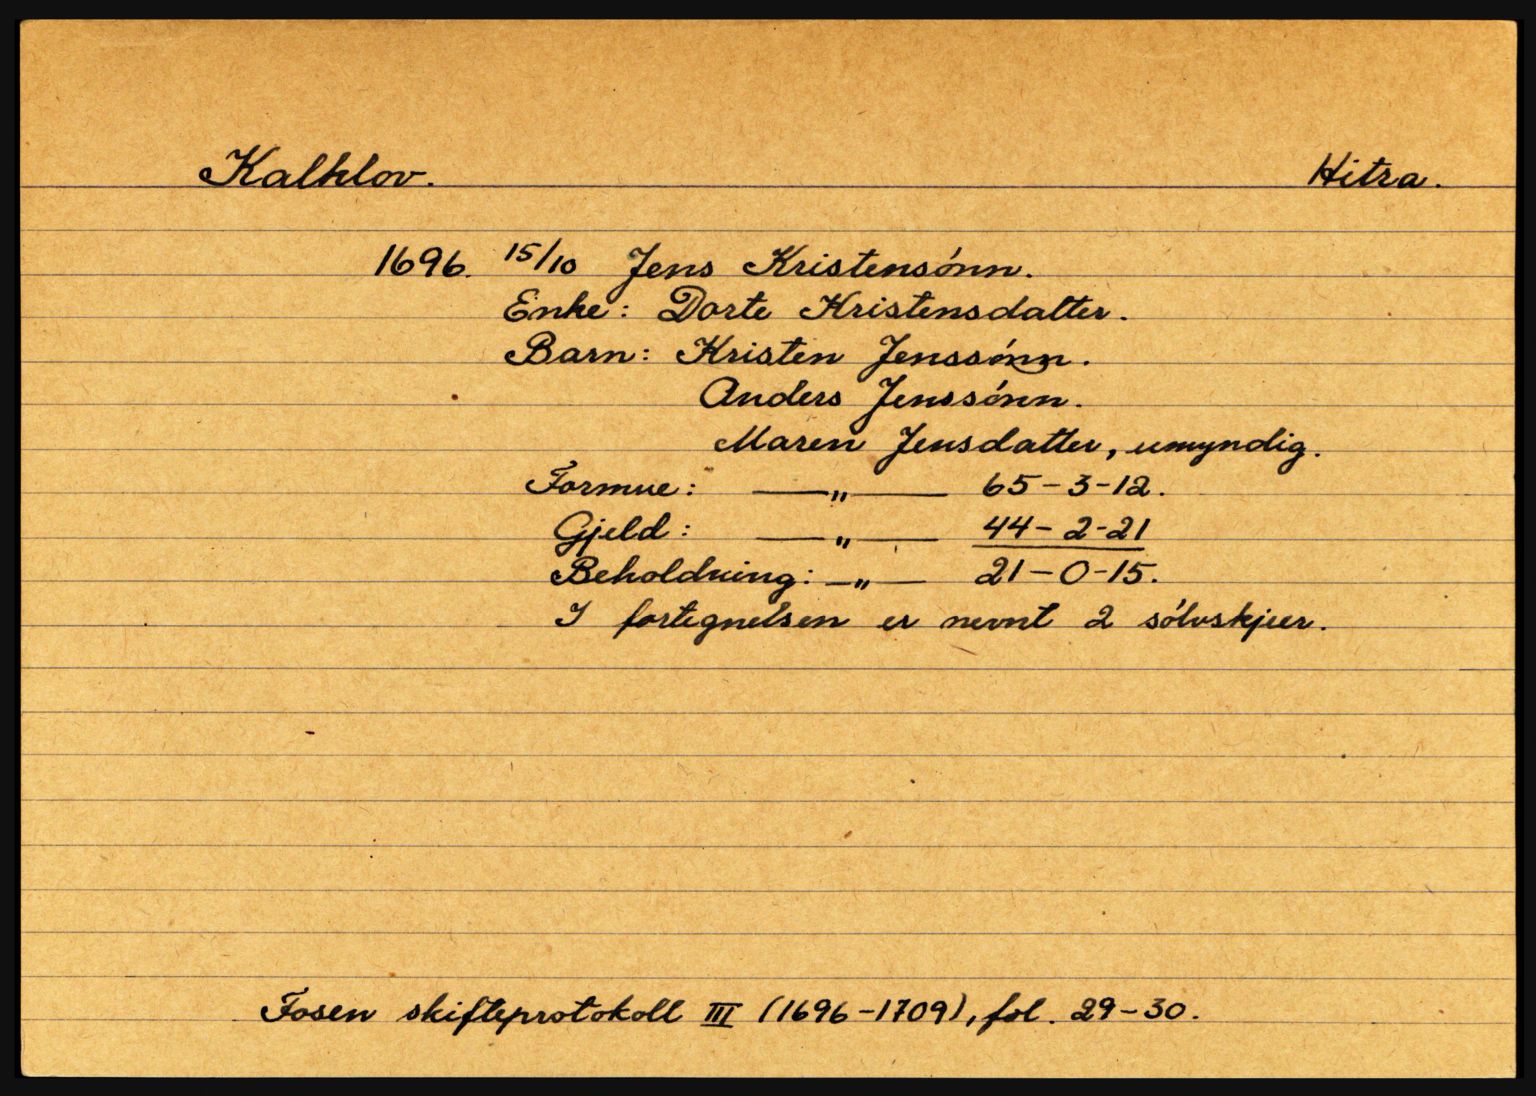 Kalklov. Hitra.
1696. 15/10 Jens Kristensónn.
Enke: Dorte Kristensdatter.
Barn: Kristen Jenssónn.
Anders Jenssónn.
Maren Jensdatter, umyndig.
Formue: —„— 65-3-12.
Gjeld: —„— 44-2-21
Beholdning: —„— 21-0-15.
I fortegnelsen er nevnt 2 sólvskjeer.
Fosen skifteprotokoll III (1696-1709), fol. 29-30.